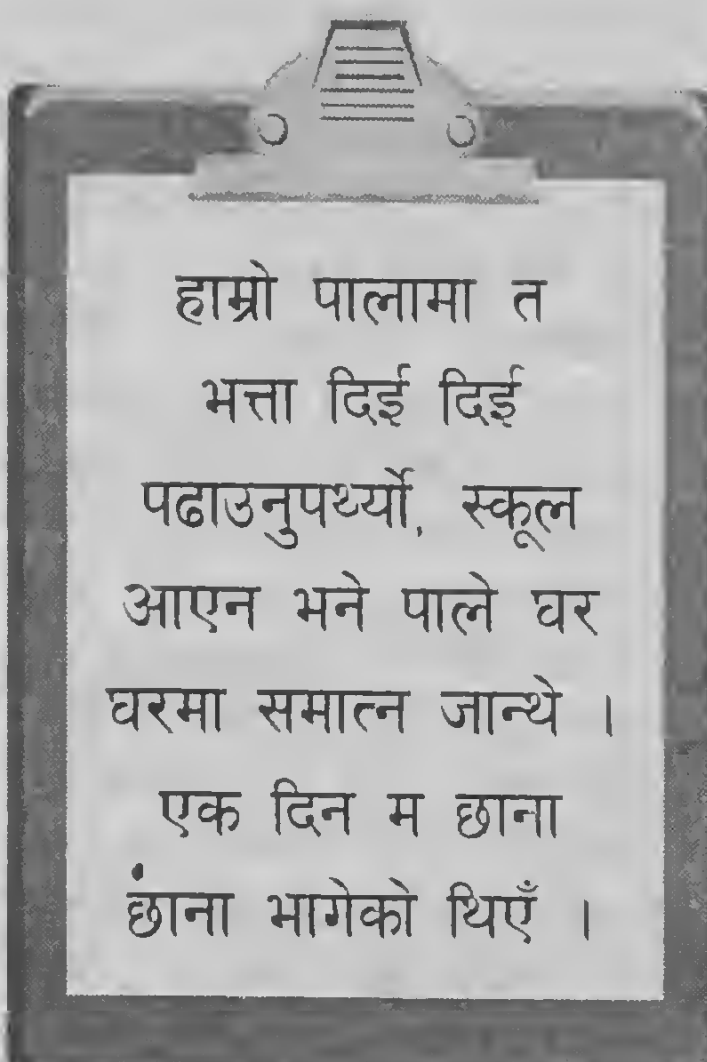 हाम्रो पालामा त
भत्ता दिई दिई
पढाउनुपर्थ्यो, स्कूल
आएन भने पाले घर
घरमा समात्न जान्थे ।
एक दिन म छाना
छाना भागेको थिएँ ।